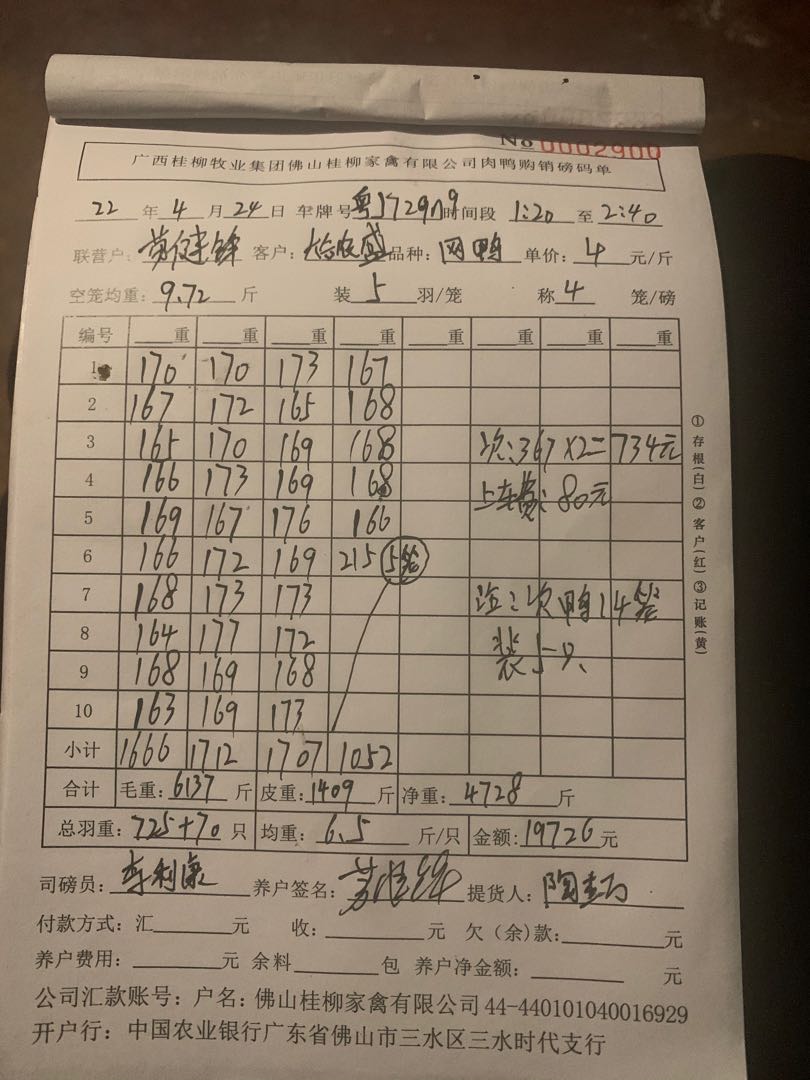 No 0002900
广西桂柳牧业集团佛山桂柳家禽有限公司肉鸭购销磅码单
22 年 4 月 24 日 车牌号 时间段 1:20 至 2:40
联营户: 客户: 品种: 网鸭 单价: 4 元/斤
空笼均重: 9.72 斤 装 5 羽/笼 称 4 笼/磅
编号 重 重 重 重 重 重 重 重
1 170 170 173 167
2 167 172 165 168
3 165 170 169 168 次:367X2=734元
4 166 173 169 168 上车费:80元
5 169 167 176 166
6 166 172 169 215 5笼
7 168 173 173 注:次鸭14笼
8 164 177 172 装5只
9 168 169 168
10 163 169 173
小计 1666 1712 1707 1052
合计 毛重: 6137 斤 皮重: 1409 斤 净重: 4728 斤
总羽重: 725+70 只 均重: 6.5 斤/只 金额: 19726 元
司磅员: 李利康 养户签名: 提货人:
付款方式: 汇 元 收: 元 欠(余)款: 元
养户费用: 元 余料 包 养户净金额: 元
公司汇款账号: 户名: 佛山桂柳家禽有限公司 44-440101040016929
开户行: 中国农业银行广东省佛山市三水区三水时代支行
①存根(白)②客户(红)③记账(黄)